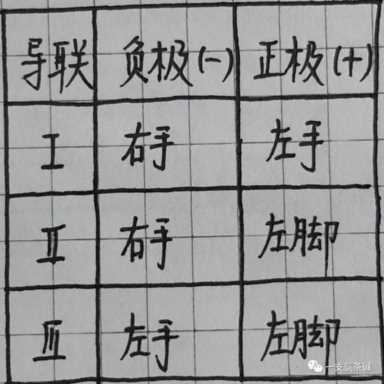 导联 负极(-) 正极(+)
I 右手 左手
II 右手 左脚
III 左手 左脚